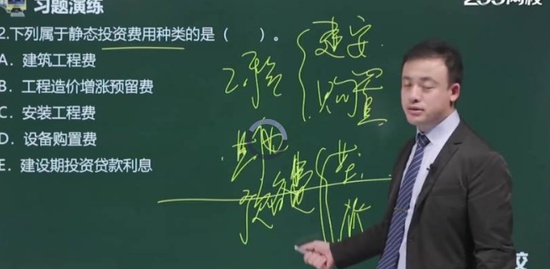 习题演练
2.下列属于静态投资费用种类的是（　　）。
A．建筑工程费
B．工程造价增涨预留费
C．安装工程费
D．设备购置费
E．建设期投资贷款利息
建安
工程
购置
其他
预备费
基